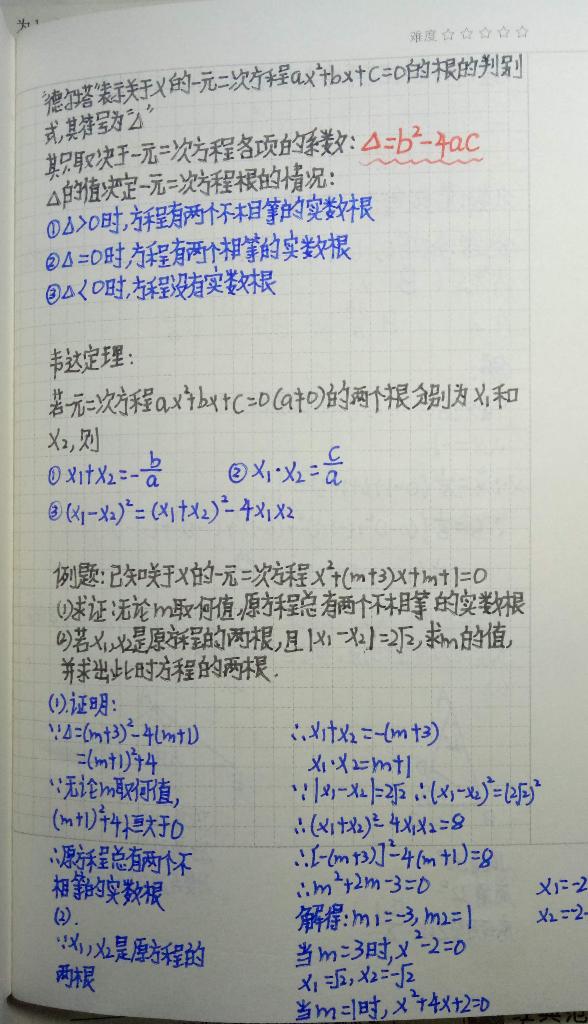 难度☆☆☆☆☆
"德尔塔"表示关于x的一元二次方程ax²+bx+c=0的根的判别
式,其符号为"△"
其只取决于一元二次方程各项的系数:△=b²-4ac
△的值决定一元二次方程根的情况:
①△>0时,方程有两个不相等的实数根
②△=0时,方程有两个相等的实数根
③△<0时,方程没有实数根
韦达定理:
若一元二次方程ax²+bx+c=0(a≠0)的两个根分别为x₁和
x₂,则
①x₁+x₂=-b/a ②x₁·x₂=c/a
③(x₁-x₂)²=(x₁+x₂)²-4x₁x₂
例题:已知关于x的一元二次方程x²+(m+3)x+m+1=0
(1)求证:无论m取何值,原方程总有两个不相等的实数根
(2)若x₁,x₂是原方程的两根,且|x₁-x₂|=2√2,求m的值,
并求出此时方程的两根.
(1).证明:
∵△=(m+3)²-4(m+1)
=(m+1)²+4
∵无论m取何值,
(m+1)²+4恒大于0
∴原方程总有两个不
相等的实数根
(2).
∵x₁,x₂是原方程的
两根
∴x₁+x₂=-(m+3)
x₁·x₂=m+1
∵|x₁-x₂|=2√2 ∴(x₁-x₂)²=(2√2)²
∴(x₁+x₂)²-4x₁x₂=8
∴[-(m+3)]²-4(m+1)=8
∴m²+2m-3=0
解得:m₁=-3,m₂=1
当m=3时,x²-2=0
x₁=√2,x₂=-√2
当m=1时,x²+4x+2=0
x₁=-2
x₂=-2-